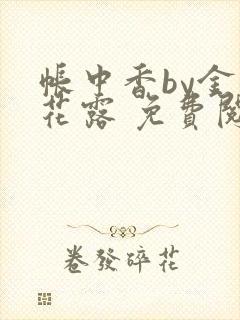 帳中香by金
花露 免費閱
卷發碎花